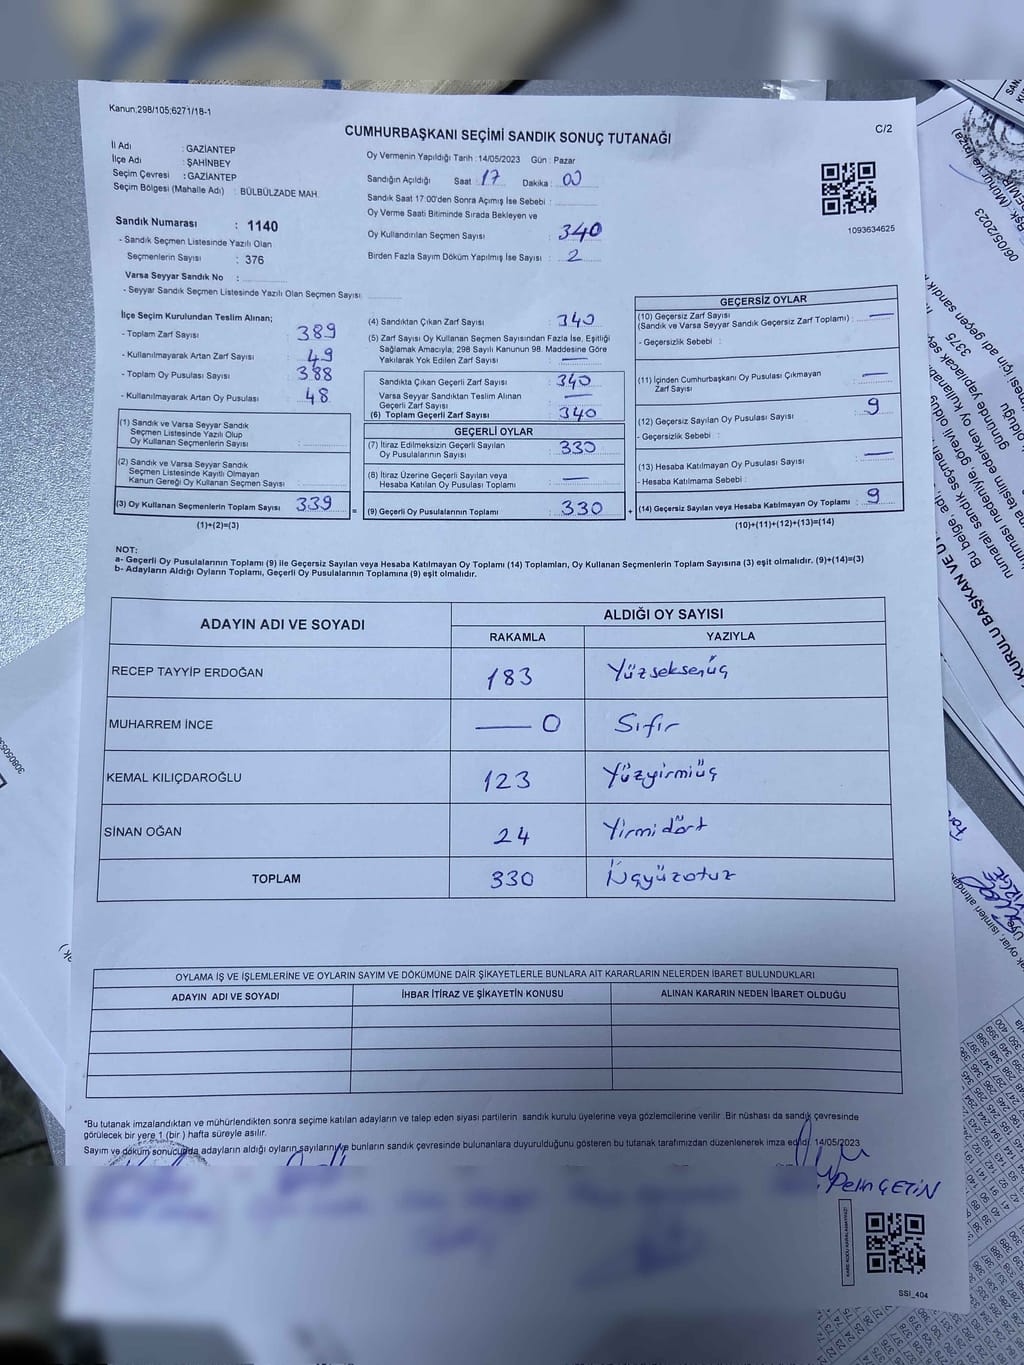 Kanun,298/105;6271/18-1
CUMHURBAŞKANI SEÇİMİ SANDIK SONUÇ TUTANAĞI
C/2
İl Adı : GAZİANTEP
İlçe Adı : ŞAHİNBEY
Seçim Çevresi : GAZİANTEP
Seçim Bölgesi (Mahalle Adı) : BÜLBÜLZADE MAH.
Sandık Numarası : 1140
- Sandık Seçmen Listesinde Yazılı Olan
Seçmenlerin Sayısı : 376
Varsa Seyyar Sandık No :
- Seyyar Sandık Seçmen Listesinde Yazılı Olan Seçmen Sayısı
Oy Vermenin Yapıldığı Tarih : 14/05/2023 Gün : Pazar
Sandığın Açıldığı Saat : 17 Dakika : 00
Sandık Saat 17:00'den Sonra Açımış İse Sebebi :
Oy Verme Saati Bitiminde Sırada Bekleyen ve
Oy Kullandırılan Seçmen Sayısı : 340
Birden Fazla Sayım Döküm Yapılmış İse Sayısı : 2
1093634625
İlçe Seçim Kurulundan Teslim Alınan;
- Toplam Zarf Sayısı : 389
- Kullanılmayarak Artan Zarf Sayısı : 49
- Toplam Oy Pusulası Sayısı : 388
- Kullanılmayarak Artan Oy Pusulası : 48
(1) Sandık ve Varsa Seyyar Sandık
Seçmen Listesinde Yazılı Olup
Oy Kullanan Seçmenlerin Sayısı :
(2) Sandık ve Varsa Seyyar Sandık
Seçmen Listesinde Kayıtlı Olmayan
Kanun Gereği Oy Kullanan Seçmen Sayısı :
(3) Oy Kullanan Seçmenlerin Toplam Sayısı : 339
(1)+(2)=(3)
(4) Sandıktan Çıkan Zarf Sayısı : 340
(5) Zarf Sayısı Oy Kullanan Seçmen Sayısından Fazla İse, Eşitliği
Sağlamak Amacıyla, 298 Sayılı Kanunun 98. Maddesine Göre
Yakılarak Yok Edilen Zarf Sayısı : —
Sandıkta Çıkan Geçerli Zarf Sayısı : 340
Varsa Seyyar Sandıktan Teslim Alınan
Geçerli Zarf Sayısı : —
(6) Toplam Geçerli Zarf Sayısı : 340
GEÇERLİ OYLAR
(7) İtiraz Edilmeksizin Geçerli Sayılan
Oy Pusulalarının Sayısı : 330
(8) İtiraz Üzerine Geçerli Sayılan veya
Hesaba Katılan Oy Pusulası Toplamı : —
= (9) Geçerli Oy Pusulalarının Toplamı : 330
GEÇERSİZ OYLAR
(10) Geçersiz Zarf Sayısı
(Sandık ve Varsa Seyyar Sandık Geçersiz Zarf Toplamı) : —
- Geçersizlik Sebebi :
(11) İçinden Cumhurbaşkanı Oy Pusulası Çıkmayan
Zarf Sayısı : —
(12) Geçersiz Sayılan Oy Pusulası Sayısı : 9
- Geçersizlik Sebebi :
(13) Hesaba Katılmayan Oy Pusulası Sayısı : —
- Hesaba Katılmama Sebebi :
+ (14) Geçersiz Sayılan veya Hesaba Katılmayan Oy Toplamı : 9
(10)+(11)+(12)+(13)=(14)
NOT:
a- Geçerli Oy Pusulalarının Toplamı (9) ile Geçersiz Sayılan veya Hesaba Katılmayan Oy Toplamı (14) Toplamları, Oy Kullanan Seçmenlerin Toplam Sayısına (3) eşit olmalıdır. (9)+(14)=(3)
b- Adayların Aldığı Oyların Toplamı, Geçerli Oy Pusulalarının Toplamına (9) eşit olmalıdır.
ADAYIN ADI VE SOYADI ALDIĞI OY SAYISI
RAKAMLA YAZIYLA
RECEP TAYYİP ERDOĞAN 183 Yüzseksenüç
MUHARREM İNCE — 0 Sıfır
KEMAL KILIÇDAROĞLU 123 Yüzyirmiüç
SİNAN OĞAN 24 Yirmidört
TOPLAM 330 Üçyüzotuz
OYLAMA İŞ VE İŞLEMLERİNE VE OYLARIN SAYIM VE DÖKÜMÜNE DAİR ŞİKAYETLERLE BUNLARA AİT KARARLARIN NELERDEN İBARET BULUNDUKLARI
ADAYIN ADI VE SOYADI İHBAR İTİRAZ VE ŞİKAYETİN KONUSU ALINAN KARARIN NEDEN İBARET OLDUĞU
*Bu tutanak imzalandıktan ve mühürlendikten sonra seçime katılan adayların ve talep eden siyasi partilerin sandık kurulu üyelerine veya gözlemcilerine verilir. Bir nüshası da sandık çevresinde
görülecek bir yere 1 (bir) hafta süreyle asılır.
Sayım ve döküm sonucunda adayların aldığı oyların sayılarını ve bunların sandık çevresinde bulunanlara duyurulduğunu gösteren bu tutanak tarafımızdan düzenlenerek imza edildi. 14/05/2023
Pelin ÇETİN
SSİ_404
06/05/2023
KURULU BAŞKAN VE